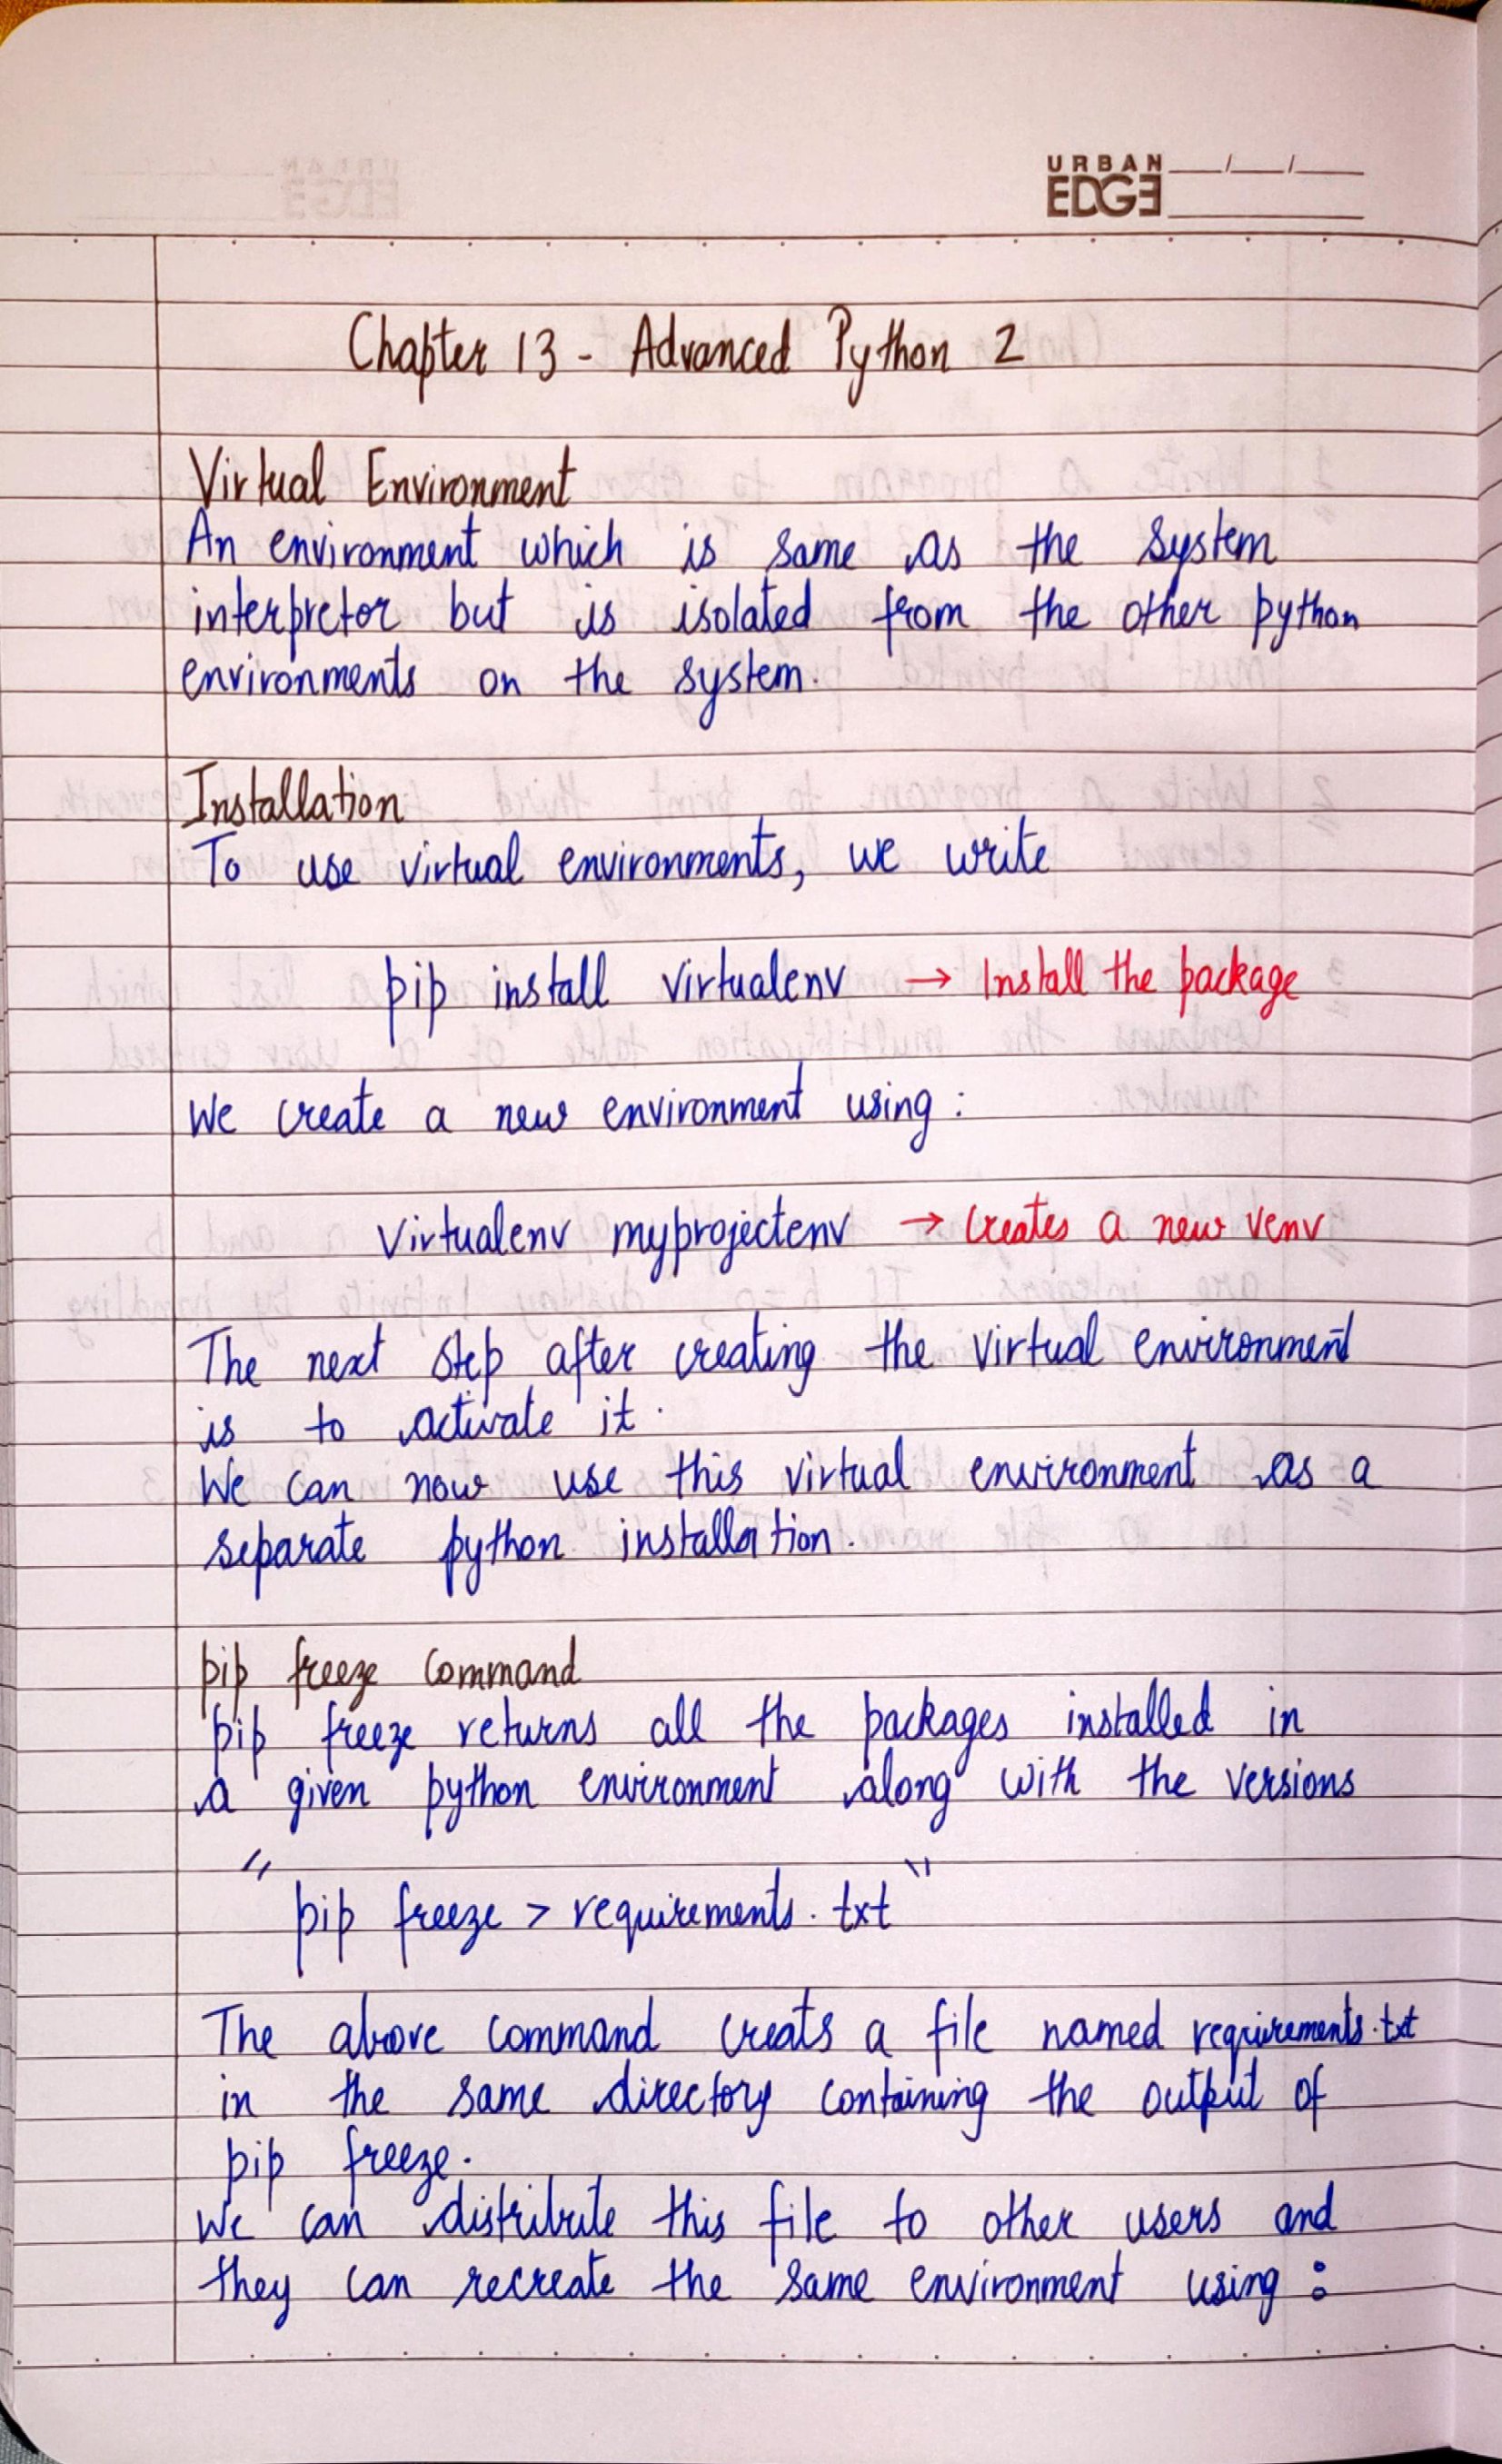 URBAN
EDGE
Chapter 13 - Advanced Python 2
Virtual Environment
An environment which is same as the system
interpretor but is isolated from the other python
environments on the system.
Installation
To use virtual environments, we write
pip install virtualenv → Install the package
We create a new environment using :
Virtualenv myprojectenv → Creates a new venv
The next step after creating the virtual environment
is to activate it.
We can now use this virtual environment as a
separate python installation.
pip freeze command
pip freeze returns all the packages installed in
a given python environment along with the versions
"pip freeze > requirements.txt"
The above command creats a file named requirements.txt
in the same directory containing the output of
pip freeze.
We can distribute this file to other users and
they can recreate the same environment using :